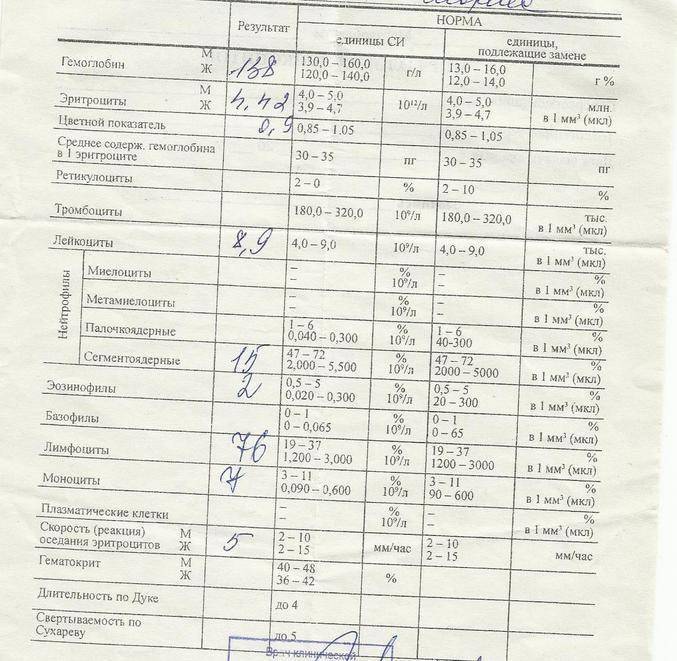 Результат
НОРМА
единицы СИ
единицы, подлежащие замене
Гемоглобин М Ж 138 130,0 – 160,0 120,0 – 140,0 г/л 13,0 – 16,0 12,0 – 14,0 г %
Эритроциты М Ж 4,42 4,0 – 5,0 3,9 – 4,7 10¹²/л 4,0 – 5,0 3,9 – 4,7 млн. в 1 мм³ (мкл)
Цветной показатель 0,9 0,85 – 1.05 0,85 – 1,05
Среднее содерж. гемоглобина в 1 эритроците 30 – 35 пг 30 – 35 пг
Ретикулоциты 2 – 0 % 2 – 10 %
Тромбоциты 180,0 – 320,0 10⁹/л 180,0 – 320,0 тыс. в 1 мм³ (мкл)
Лейкоциты 8,9 4,0 – 9,0 10⁹/л 4,0 – 9,0 тыс. в 1 мм³ (мкл)
Нейтрофилы
Миелоциты – – % 10⁹/л – – % в 1 мм³ (мкл)
Метамиелоциты – – % 10⁹/л – – % в 1 мм³ (мкл)
Палочкоядерные 1 – 6 0,040 – 0,300 % 10⁹/л 1 – 6 40-300 % в 1 мм³ (мкл)
Сегментоядерные 15 47 – 72 2,000 – 5,500 % 10⁹/л 47 – 72 2000 – 5000 % в 1 мм³ (мкл)
Эозинофилы 2 0,5 – 5 0,020 – 0,300 % 10⁹/л 0,5 – 5 20 – 300 % в 1 мм³ (мкл)
Базофилы 0 – 1 0 – 0,065 % 10⁹/л 0 – 1 0 – 65 % в 1 мм³ (мкл)
Лимфоциты 76 19 – 37 1,200 – 3,000 % 10⁹/л 19 – 37 1200 – 3000 % в 1 мм³ (мкл)
Моноциты 7 3 – 11 0,090 – 0,600 % 10⁹/л 3 – 11 90 – 600 % в 1 мм³ (мкл)
Плазматические клетки – – % 10⁹/л – – % в 1 мм³ (мкл)
Скорость (реакция) оседания эритроцитов М Ж 5 2 – 10 2 – 15 мм/час 2 – 10 2 – 15 мм/час
Гематокрит М Ж 40 – 48 36 – 42 %
Длительность по Дуке до 4
Свертываемость по Сухареву до 5
Врач клинической